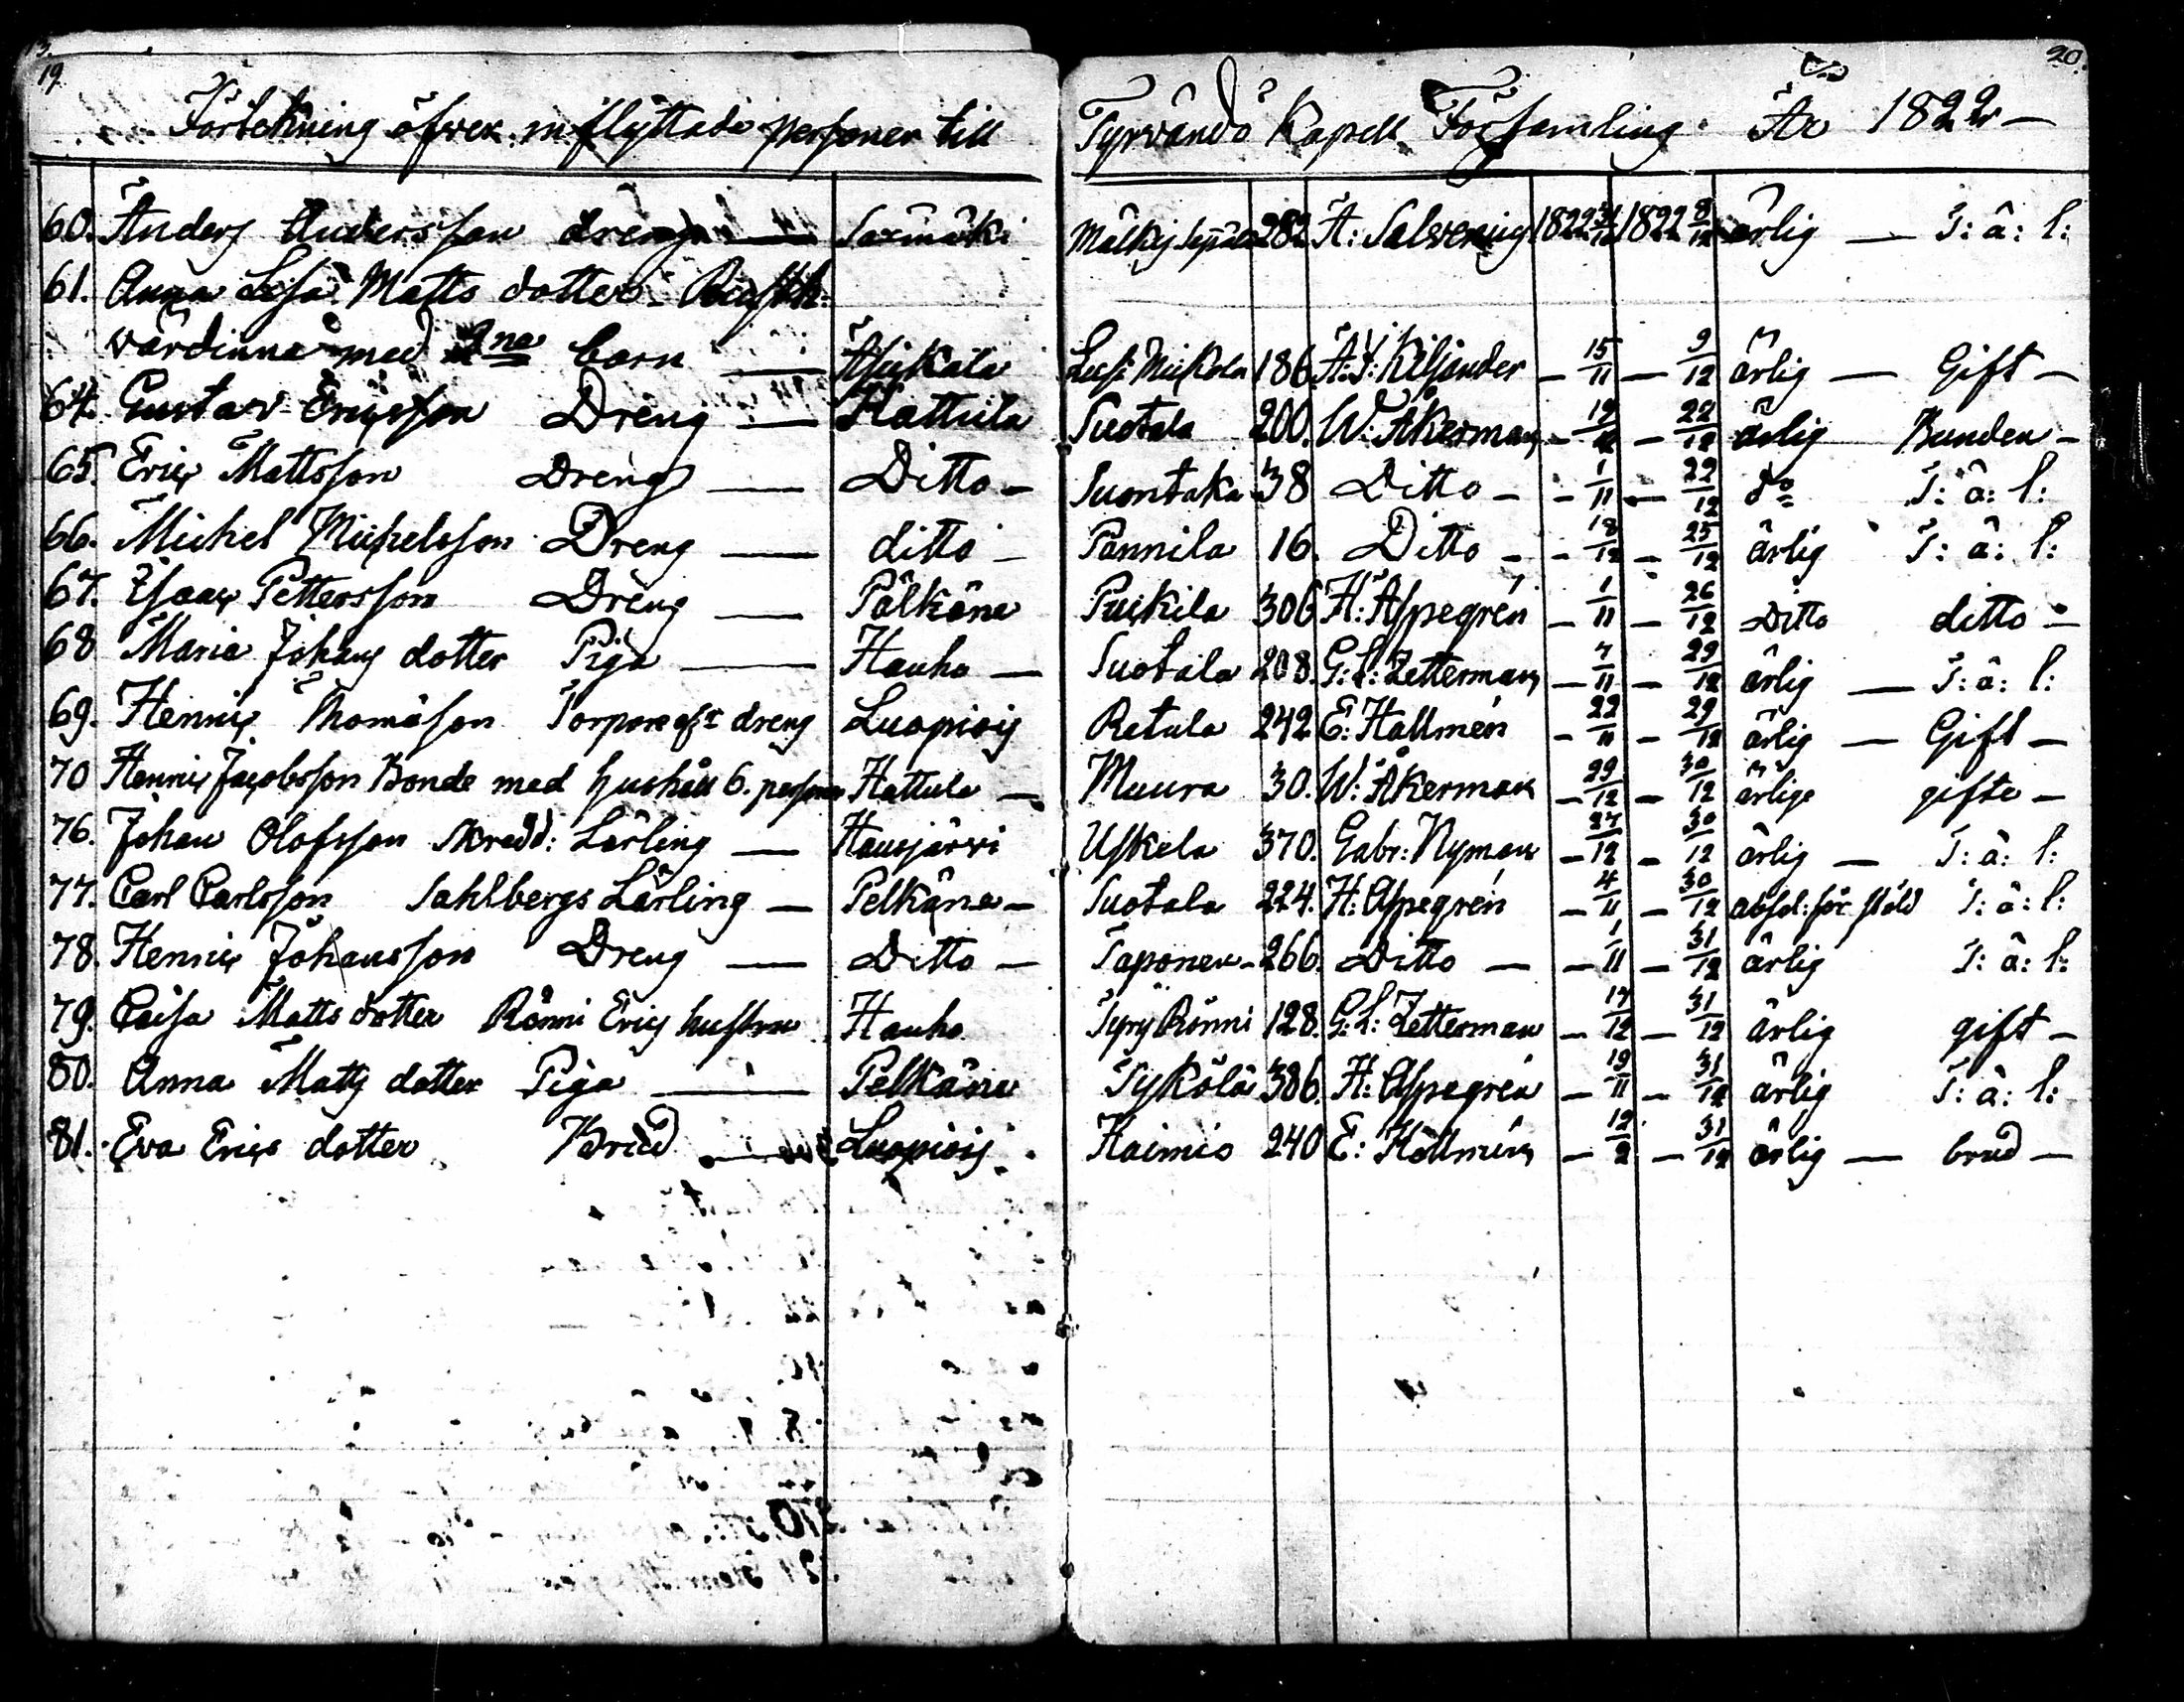 19. 20.
Förtekning öfver inflyttade personer till Tyrvändö Kapell Församling År 1822 —
60. Anders Andersson dreng — Saxmäki Mälkis Seppälä 282 A: Salvenius 1822 31/10 1822 8/12 ärlig — T: â: l:
61. Anna Lisa Matts dotter Rusth:
värdinna med 2ne barn — Asikala Lusi Mickola 186 A: J: Kiljander — 15/11 — 9/12 ärlig — Gift —
64. Gustav Ericsson Dreng — Hattula Suotala 200. W: Åkerman — — 22/12 ärlig Bunden —
65. Eric Mattsson Dreng — Ditto — Suontaka 38 Ditto — — 1/11 — 22/12 do T: â: l:
66. Michel Michelsson Dreng — ditto — Pannila 16. Ditto — — 18/12 — 25/12 ärlig T: â: l:
67. Isaac Pettersson Dreng — Pälkäne Puikila 306 H: Aspegrén — 1/11 — 26/12 Ditto ditto —
68 Maria Johans dotter Piga — Hauho — Suotala 208. G: L: Zetterman — 7/11 — 29/12 ärlig — T: â: l:
69. Henric Thomasson Torpare afsk dreng Luopiois Retula 242 E: Hallmén — 22/11 — 29/12 ärlig — Gift —
70 Henric Jacobsson Bonde med hushåll 6. personer Hattula — Muura 30. W: Åkerman — 29/12 — 30/12 ärlige gifte —
76. Johan Olofsson Skredd: Lärling — Hausjärvi Uskela 370. Gabr: Nyman — 27/12 — 30/12 ärlig — T: â: l:
77. Carl Carlsson Sahlbergs Lärling — Pelkäne — Suotala 224. H: Aspegrén — 4/11 — 30/12 absol: för stöld T: â: l:
78. Henric Johansson Dreng — Ditto — Taponen — 266. Ditto — — 1/11 — 31/12 ärlig T: â: l:
79. Caisa Matts dotter Rönni Erics hustru Hauho Tyry Rönni 128. G: L: Zetterman — 17/12 — 31/12 ärlig gift —
80. Anna Matts dotter Piga — Pelkäne Tykölä 386. H: Aspegrén — 19/11 — 31/12 ärlig T: â: l:
81. Eva Erics dotter Brud — Luopiois Haimio 240 E: Hallmén — 12/2 — 31/12 ärlig — brud —